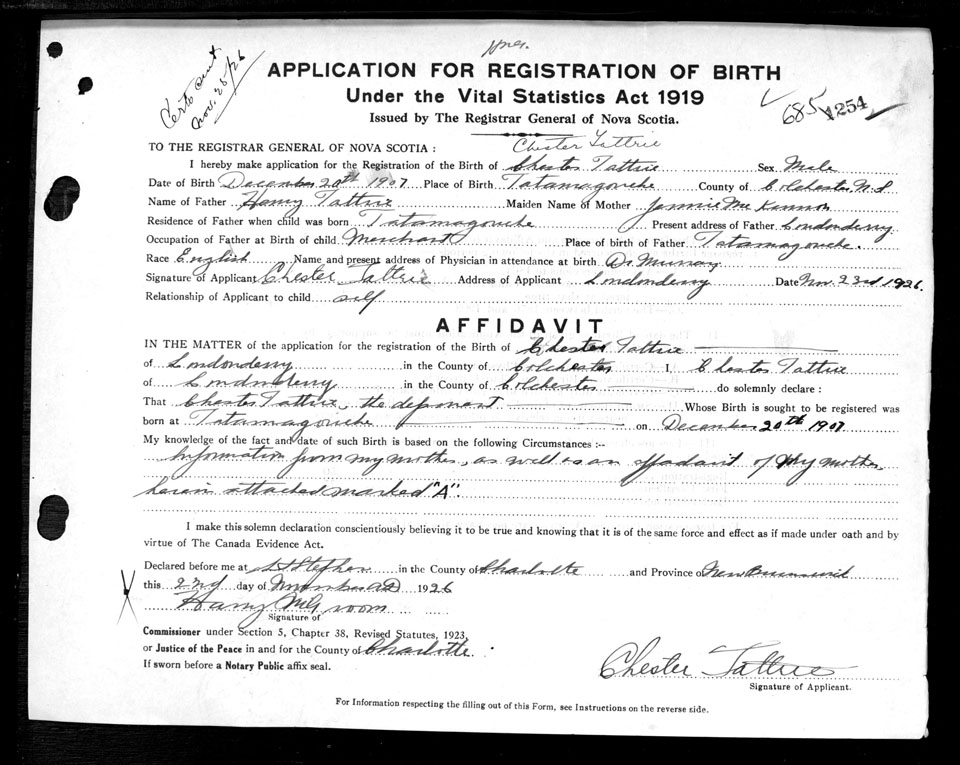 APPLICATION FOR REGISTRATION OF BIRTH
Under the Vital Statistics Act 1919
Issued by The Registrar General of Nova Scotia.
Nov. 25/26
685 1254
Chester Tattrie
TO THE REGISTRAR GENERAL OF NOVA SCOTIA :
I hereby make application for the Registration of the Birth of Chester Tattrie Sex Male
Date of Birth December 20th 1907 Place of Birth Tatamagouche County of Colchester N.S
Name of Father Harry Tattrie Maiden Name of Mother Jennie
Residence of Father when child was born Tatamagouche Present address of Father Londonderry
Occupation of Father at Birth of child Merchant Place of birth of Father Tatamagouche.
Race English Name and present address of Physician in attendance at birth Dr Murray
Signature of Applicant Chester Tattrie Address of Applicant Londonderry Date Nov. 23rd 1926.
Relationship of Applicant to child self
AFFIDAVIT
IN THE MATTER of the application for the registration of the Birth of Chester Tattrie
of Londonderry in the County of Colchester I, Chester Tattrie
of Londonderry in the County of Colchester do solemnly declare :
That Chester Tattrie, the deponent Whose Birth is sought to be registered was
born at Tatamagouche on December 20th 1907
My knowledge of the fact and date of such Birth is based on the following Circumstances :--
Information from my mother, as well as an affadavit of my mother
herein attached marked "A".
I make this solemn declaration conscientiously believing it to be true and knowing that it is of the same force and effect as if made under oath and by
virtue of The Canada Evidence Act.
Declared before me at St Stephen in the County of Charlotte and Province of New Brunswick
this 22nd day of November AD 1926
Harry
Signature of
Commissioner under Section 5, Chapter 38, Revised Statutes, 1923,
or Justice of the Peace in and for the County of Charlotte.
If sworn before a Notary Public affix seal.
Chester Tattrie
Signature of Applicant.
For Information respecting the filling out of this Form, see Instructions on the reverse side.